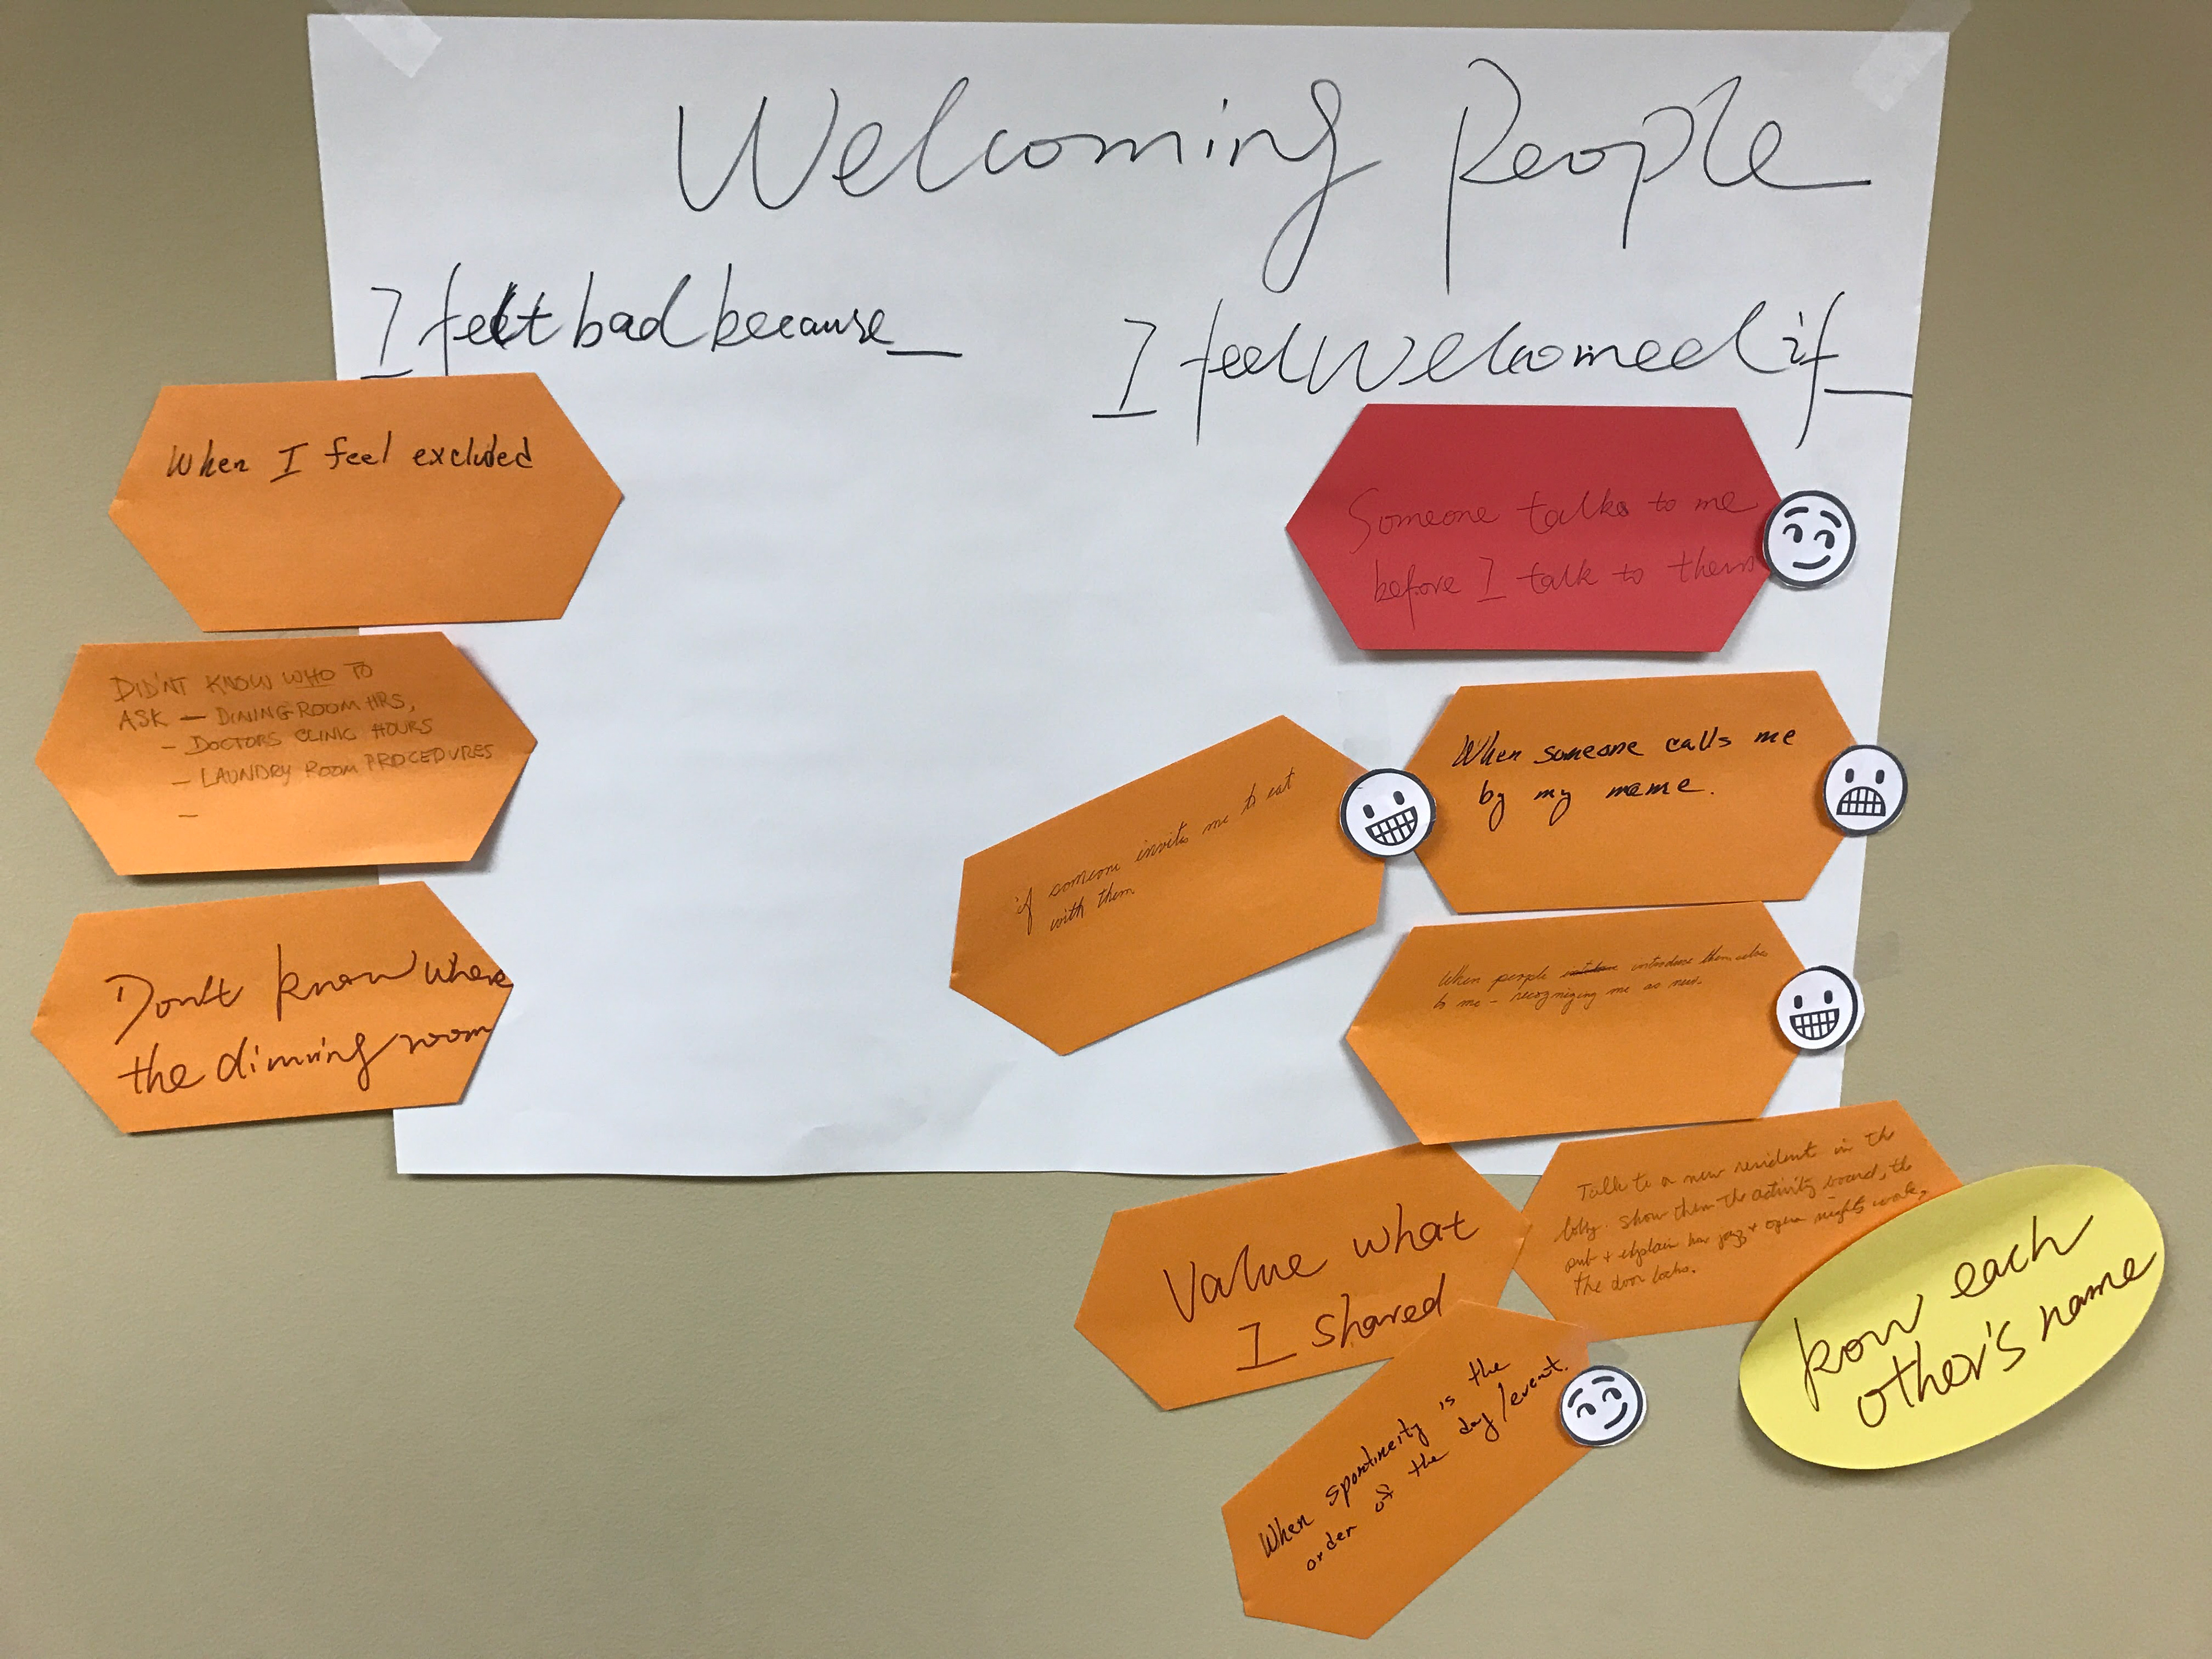 Welcoming People
I felt bad because_
I feel Welcomed if_
When I feel excluded
DID'NT KNOW WHO TO
ASK — DINING ROOM HRS,
- DOCTORS CLINIC HOURS
- LAUNDRY ROOM PROCEDURES
-
Don't know where
the dinning room
Someone talks to me
before I talk to them
if someone invites me to eat
with them
When someone calls me
by my name.
When people introduce themselves
to me - recognizing me as new.
Value what
I shared
Talk to a new resident in the
loby. Show them the activity board, the
put + explain how jazz + opera nights work,
the door locks.
know each
other's name
When spontineity is the
order of the day/event.